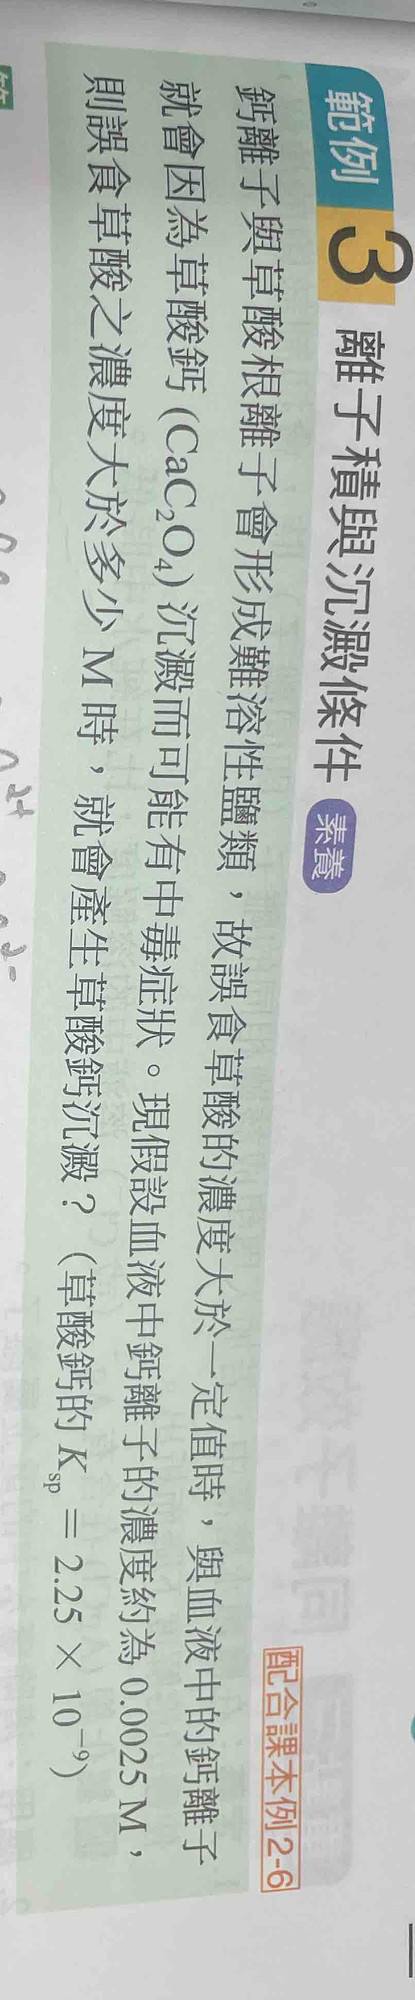 範例 3 離子積與沉澱條件 素養
配合課本例2-6
鈣離子與草酸根離子會形成難溶性鹽類，故誤食草酸的濃度大於一定值時，與血液中的鈣離子
就會因為草酸鈣 (CaC₂O₄) 沉澱而可能有中毒症狀。現假設血液中鈣離子的濃度約為 0.0025 M，
則誤食草酸之濃度大於多少 M 時，就會產生草酸鈣沉澱？（草酸鈣的 Ksp = 2.25 × 10⁻⁹）